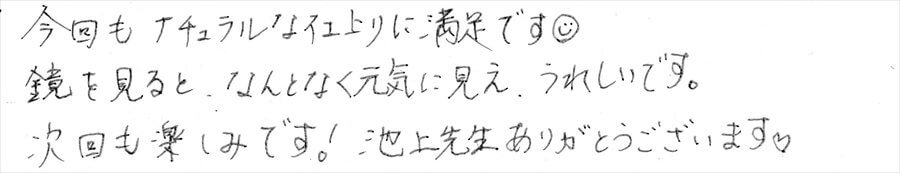 今回も ナチュラルな仕上りに満足です☺
鏡を見ると、なんとなく元気に見え、うれしいです。
次回も楽しみです! 池上先生ありがとうございます♡